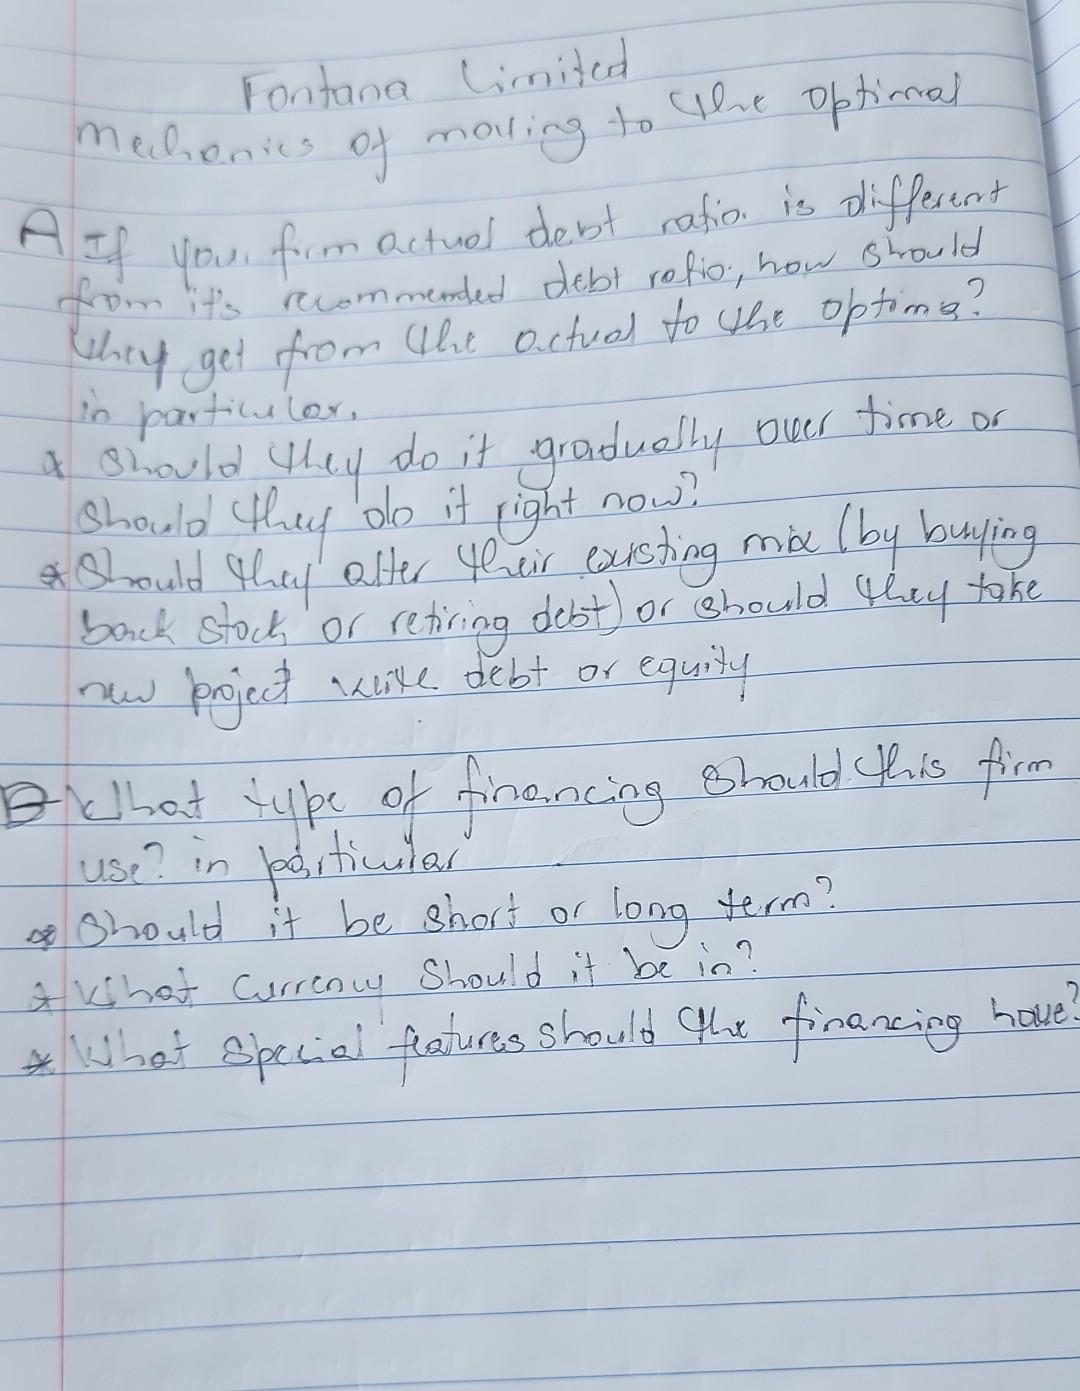 Fontana Limited
Mechanics of moving to the optimal
A If your firm actual debt ratio is different
from it's recommended debt ratio, how should
they get from the actual to the optima?
in particular,
* Should they do it gradually over time or
should they do it right now?
* Should they alter their existing mix (by buying
back stock or retiring debt) or should they take
new project debt or equity
B What type of financing should this firm
use? in particular
* Should it be short or long term?
* What currency should it be in?
* What special features should the financing have?